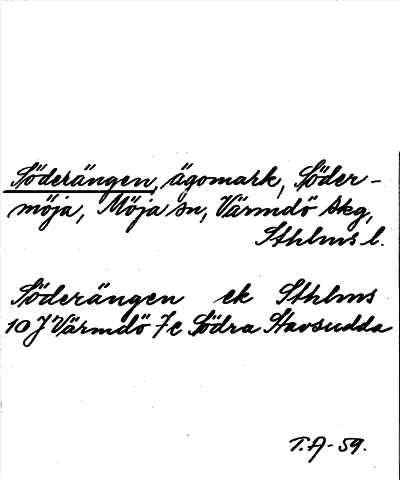 Söderängen, ägomark, Söder-
möja, Möja sn, Värmdö skg,
Sthlms l.
Söderängen ek Sthlms
10 J Värmdö 7c Södra Stavsudda
T.A-59.